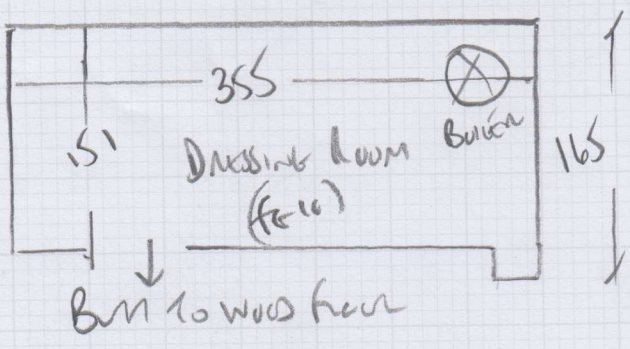 355
BOILER
151
DRESSING ROOM
165
TO WOOD FLOOR